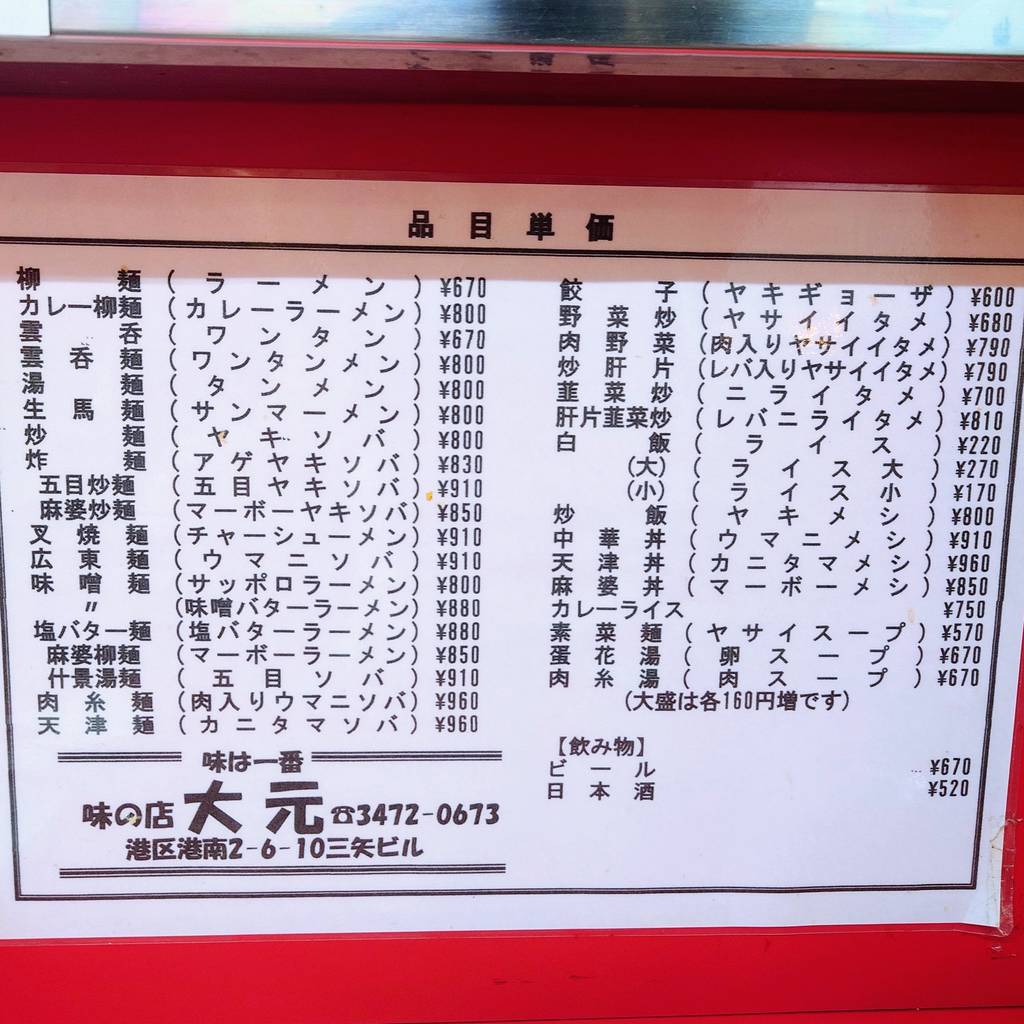 品目単価
柳麺（ラーメン）¥670
カレー柳麺（カレーラーメン）¥800
雲呑（ワンタン）¥670
雲呑麺（ワンタンメン）¥800
湯麺（タンメン）¥800
生馬麺（サンマーメン）¥800
炒麺（ヤキソバ）¥800
炸麺（アゲヤキソバ）¥830
五目炒麺（五目ヤキソバ）¥910
麻婆炒麺（マーボーヤキソバ）¥850
叉焼麺（チャーシューメン）¥910
広東麺（ウマニソバ）¥910
味噌麺（サッポロラーメン）¥800
〃（味噌バターラーメン）¥880
塩バター麺（塩バターラーメン）¥880
麻婆柳麺（マーボーラーメン）¥850
什景湯麺（五目ソバ）¥910
肉糸麺（肉入りウマニソバ）¥960
天津麺（カニタマソバ）¥960
味は一番
味の店 大元 ☎3472-0673
港区港南2-6-10三矢ビル
餃子（ヤキギョーザ）¥600
野菜炒（ヤサイイタメ）¥680
肉野菜（肉入りヤサイイタメ）¥790
炒肝片（レバ入りヤサイイタメ）¥790
韮菜炒（ニライタメ）¥700
肝片韮菜炒（レバニライタメ）¥810
白飯（ライス）¥220
（大）（ライス大）¥270
（小）（ライス小）¥170
炒飯（ヤキメシ）¥800
中華丼（ウマニメシ）¥910
天津丼（カニタマメシ）¥960
麻婆丼（マーボーメシ）¥850
カレーライス ¥750
素菜麺（ヤサイスープ）¥570
蛋花湯（卵スープ）¥670
肉糸湯（肉スープ）¥670
（大盛は各160円増です）
【飲み物】
ビール … ¥670
日本酒 ¥520